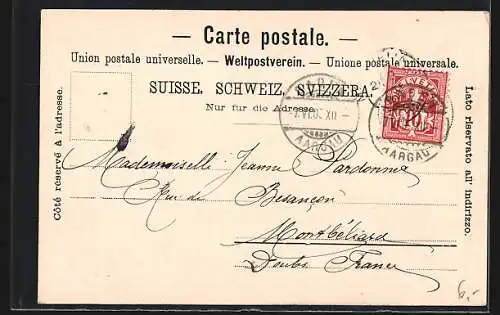 — Carte postale. —
Union postale universelle. — Weltpostverein. — Unione postale universale.
SUISSE. SCHWEIZ. SVIZZERA.
Nur für die Adresse.
Côté réservé à l'adresse.
Lato riservato all' indirizzo.
HELVETIA
10
AARGAU
-7.VI.05. XII -
AARGAU
Mademoiselle Jeanne Pardonne
Rue de Besançon
Montbéliard
Doubs. France
6,-